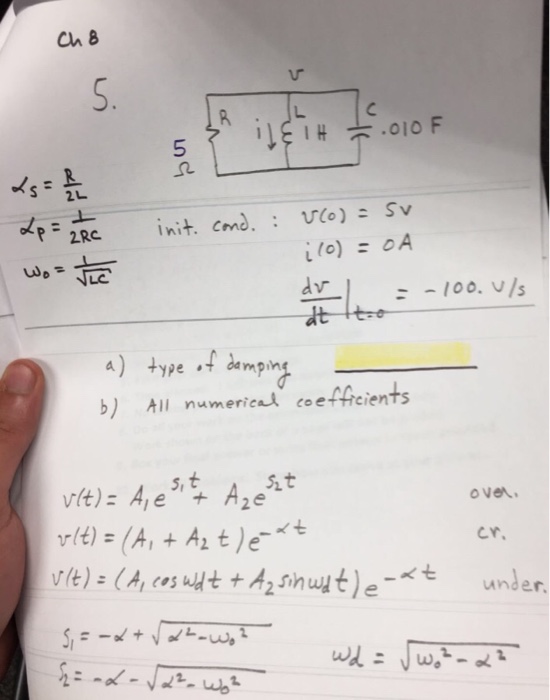 Ch 8
5.
v
R
i↓
L
1 H
C
.010 F
5
Ω
αs = R/2L
αp = 1/2RC
ω₀ = 1/√LC
init. cond. : v(0) = 5v
i(0) = 0A
dv/dt |t=0 = -100. V/s
a) type of damping
b) All numerical coefficients
v(t) = A₁e^s₁t + A₂e^s₂t over.
v(t) = (A₁ + A₂t)e^-αt cr.
v(t) = (A₁ cos ωdt + A₂ sin ωdt)e^-αt under.
s₁ = -α + √α²-ω₀²
ωd = √ω₀² - α²
s₂ = -α - √α² - ω₀²